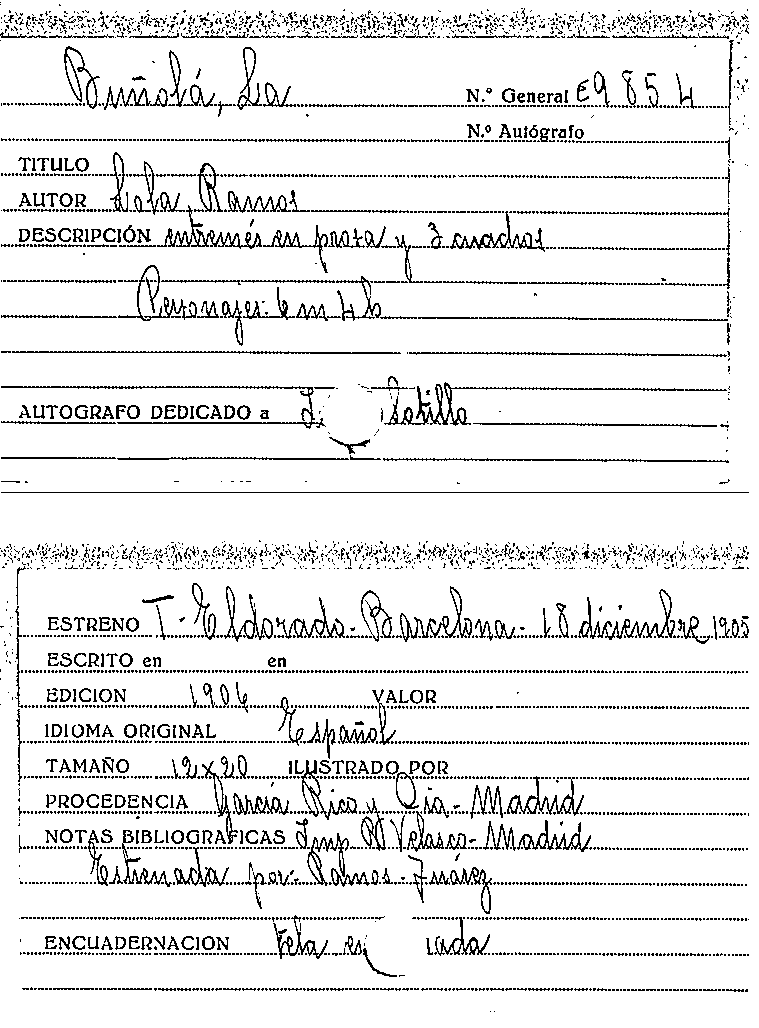 Buñolá, La
N.º General E9854
N.º Autógrafo
TITULO
AUTOR Lola Ramos
DESCRIPCIÓN entremés en prosa y 3 cuadros
Personajes: 6 m 4 h
AUTOGRAFO DEDICADO a Sotillo
ESTRENO T. Eldorado - Barcelona - 18 diciembre 1905
ESCRITO en en
EDICION 1906 VALOR
IDIOMA ORIGINAL Español
TAMAÑO 12x20 ILUSTRADO POR
PROCEDENCIA García Rico y Cia - Madrid
NOTAS BIBLIOGRAFICAS Imp. R Velasco - Madrid
Estrenada por: Palmos - Juárez
ENCUADERNACION tela